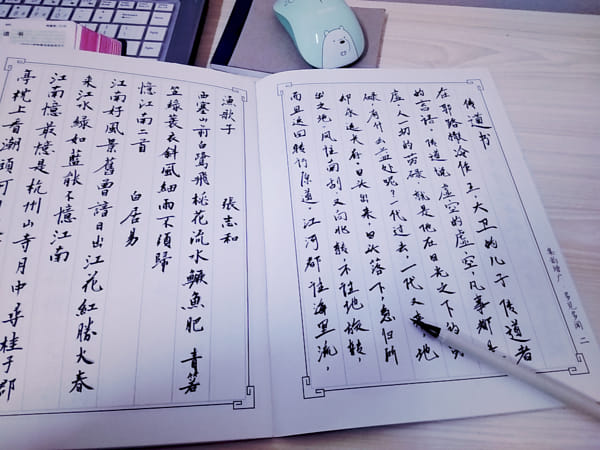 传道书
在耶路撒冷作王,大卫的儿子传道者
的言语。传道说虚空的虚空,凡事都
虚。人一切的劳碌,就是他在日光之下的
碌有什么益处呢?一代过去,一代又来,地
却永远长存。日头出来,日头落下,急归所
出之地。风往南刮又向北转不住地旋转,
而且返回转行原道。江河都往海里流,
集韵增广 多见多闻 二
漁歌子 張志和
西塞山前白鷺飛桃花流水鱖魚肥 青箬
笠綠蓑衣斜風細雨不須歸
憶江南二首 白居易
江南好風景舊曾諳日出江花紅勝火春
來江水綠如藍能不憶江南
江南憶最憶是杭州山寺月中尋桂子郡
亭枕上看潮頭何